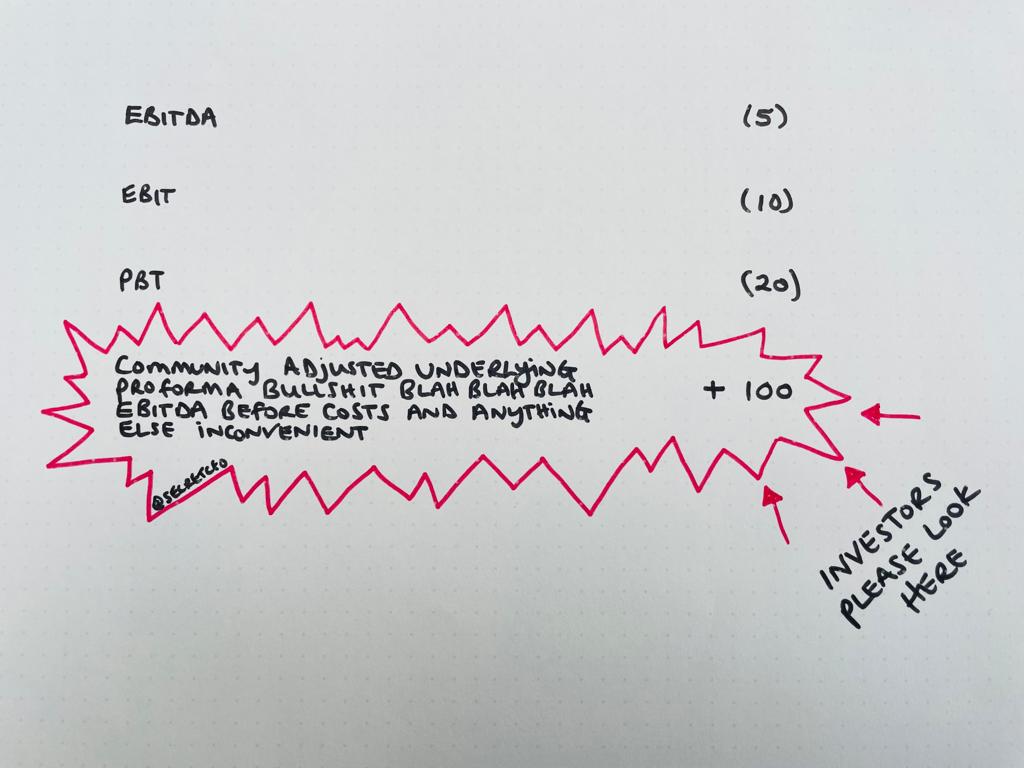 EBITDA (5)
EBIT (10)
PBT (20)
COMMUNITY ADJUSTED UNDERLYING
PROFORMA BULLSHIT BLAH BLAH BLAH + 100
EBITDA BEFORE COSTS AND ANYTHING
ELSE INCONVENIENT
@SECRETCFO
INVESTORS
PLEASE LOOK
HERE